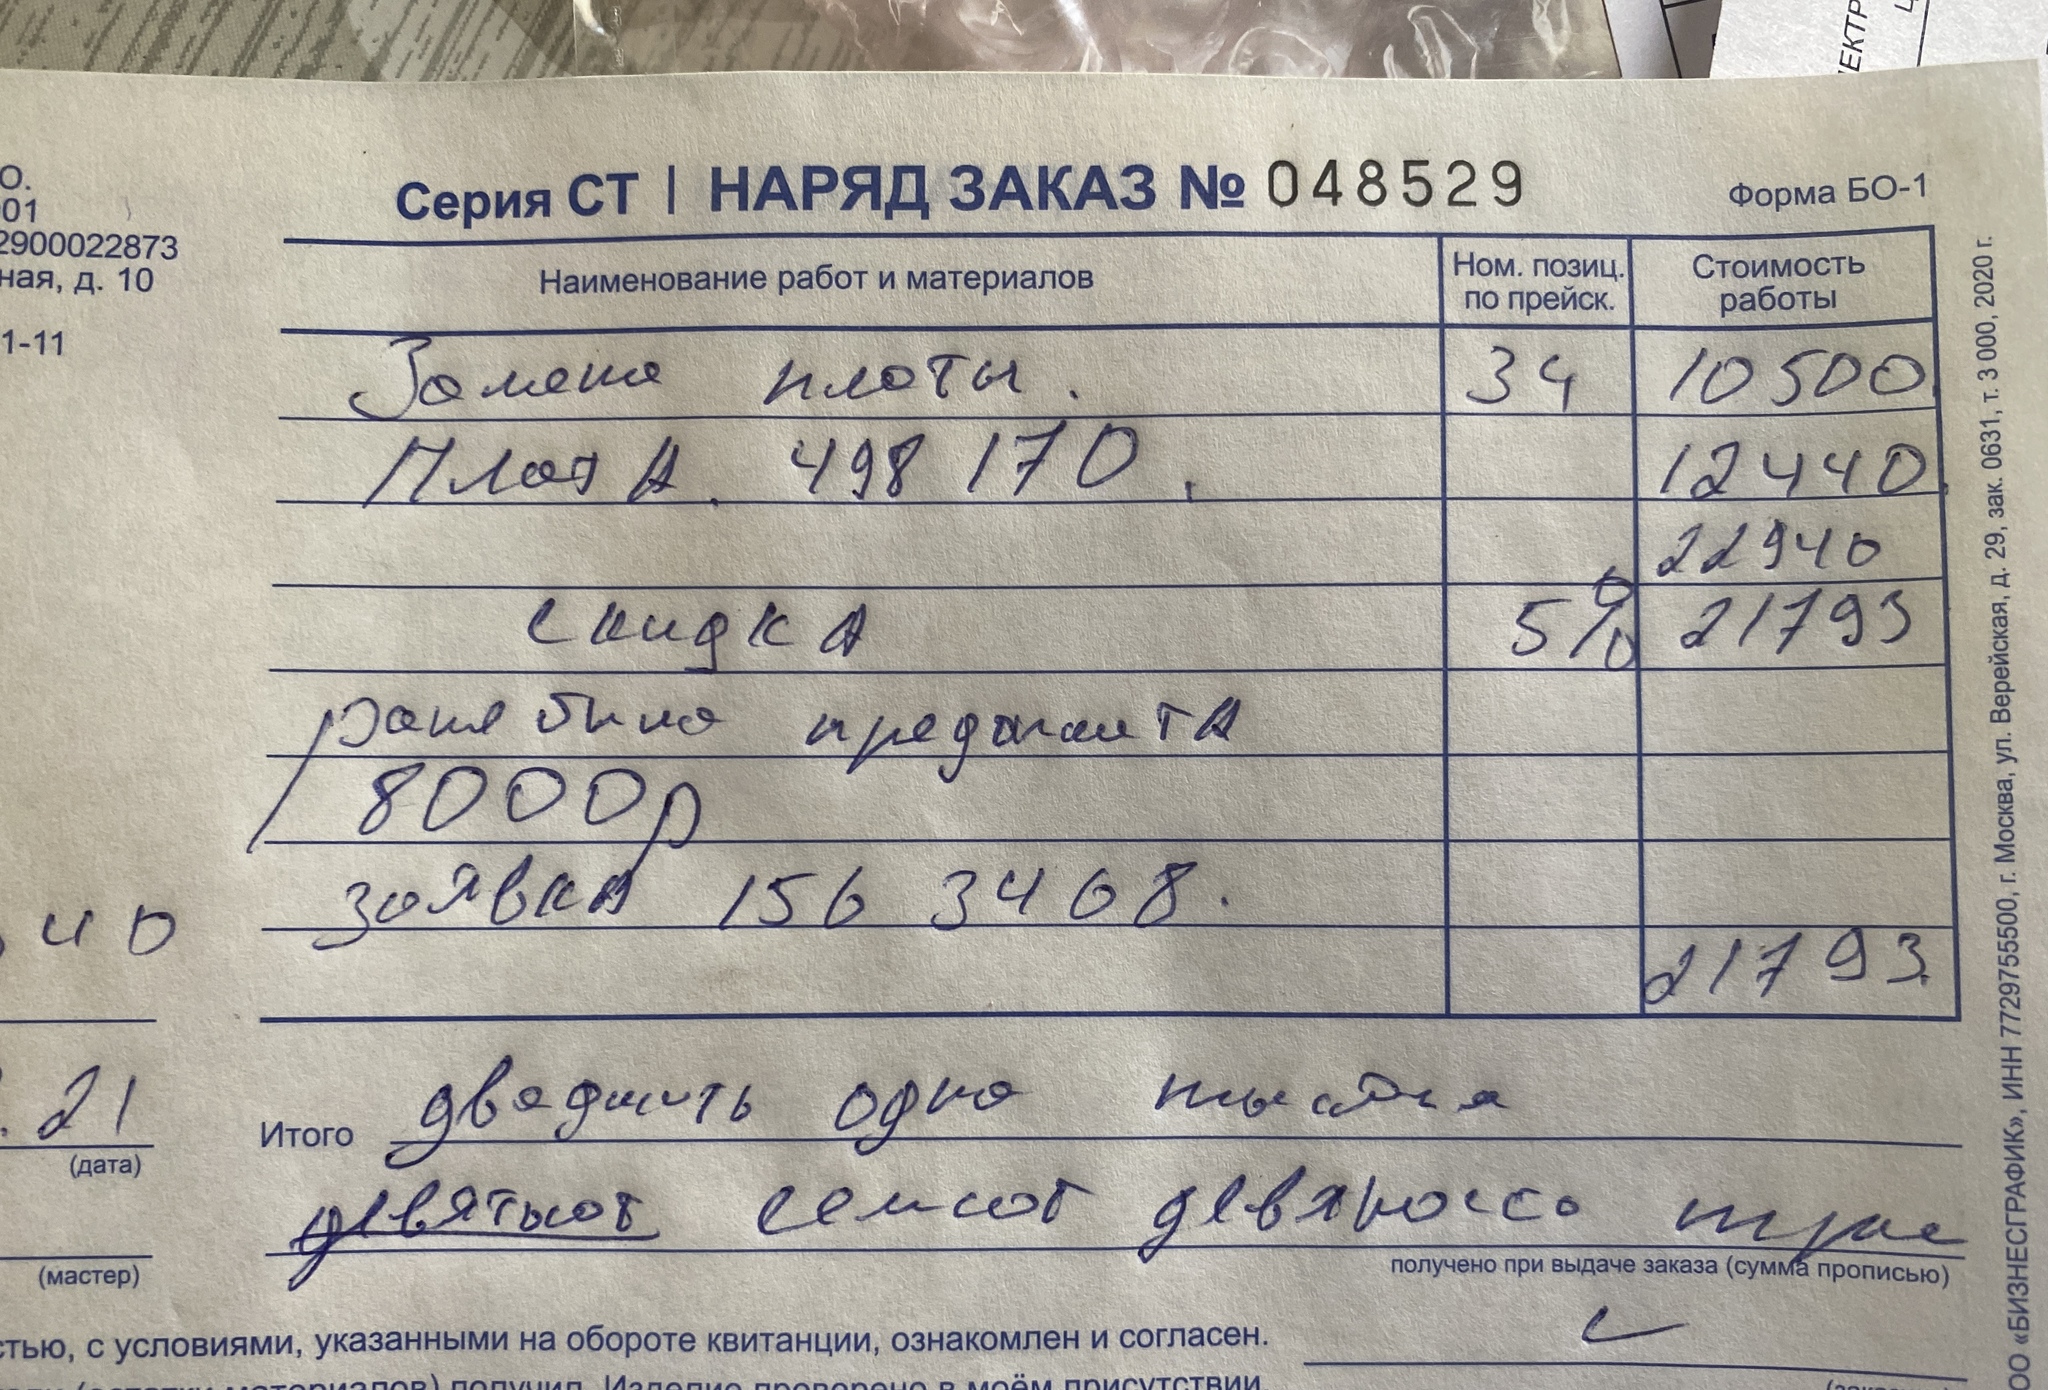 ЕКТР
О.
01
Серия СТ | НАРЯД ЗАКАЗ № 048529
Форма БО-1
2900022873
ная, д. 10
1-11
Наименование работ и материалов
Ном. позиц. по прейск.
Стоимость работы
Замена платы. 34 10500.
Плата. 498170. 12440.
22940
скидка 5% 21793
Ранее была предоплата
8000р
заявка 156 3468.
40
21793.
. 21
(дата)
Итого двадцать одна тысяча
девятьсот семьсот девяносто три
(мастер)
получено при выдаче заказа (сумма прописью)
стью, с условиями, указанными на обороте квитанции, ознакомлен и согласен.
получил. Изделие проверено в моём присутствии.
ОО «БИЗНЕСГРАФИК», ИНН 7729755500, г. Москва, ул. Верейская, д. 29, зак. 0631, т. 3 000, 2020 г.